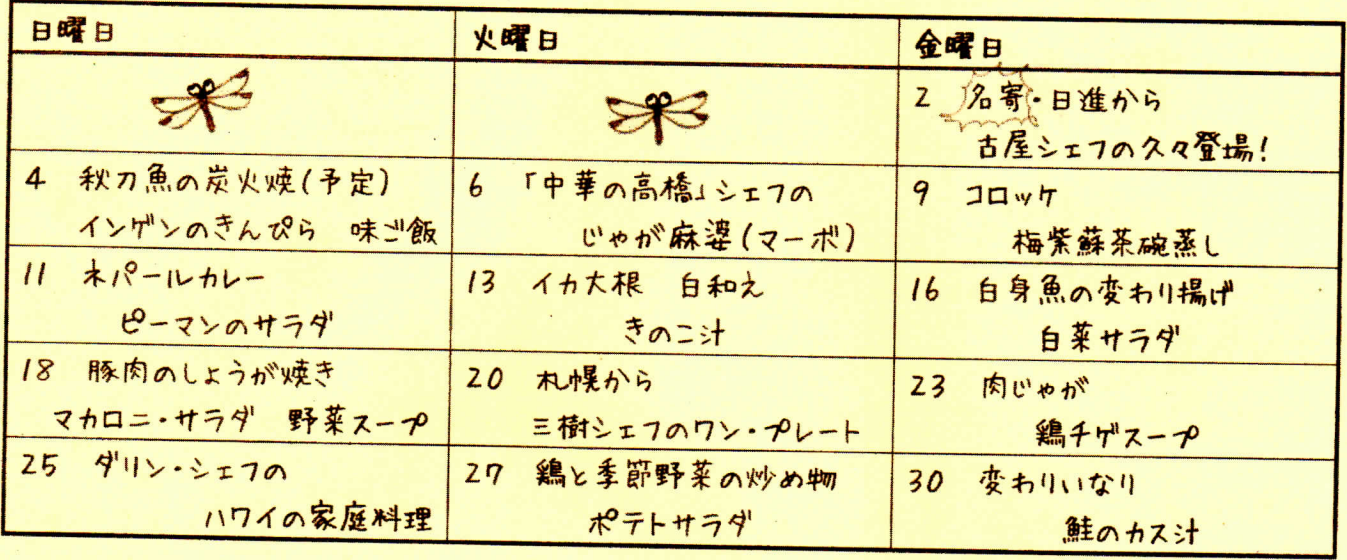 日曜日
火曜日
金曜日
2 名寄・日進から
古屋シェフの久々登場!
4 秋刀魚の炭火焼(予定)
インゲンのきんぴら 味ご飯
6 「中華の高橋」シェフの
じゃが麻婆(マーボ)
9 コロッケ
梅紫蘇茶碗蒸し
11 ネパールカレー
ピーマンのサラダ
13 イカ大根 白和え
きのこ汁
16 白身魚の変わり揚げ
白菜サラダ
18 豚肉のしょうが焼き
マカロニ・サラダ 野菜スープ
20 札幌から
三樹シェフのワン・プレート
23 肉じゃが
鶏チゲスープ
25 ダリン・シェフの
ハワイの家庭料理
27 鶏と季節野菜の炒め物
ポテトサラダ
30 変わりいなり
鮭のカス汁